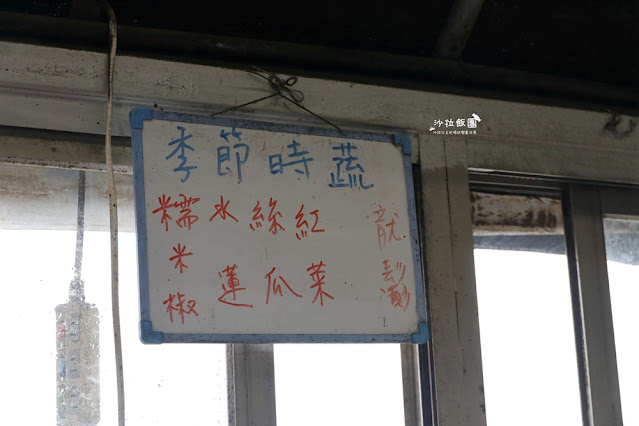 季節時蔬
龍鬚
紅菜
絲瓜
水蓮
糯米椒
沙拉飯團